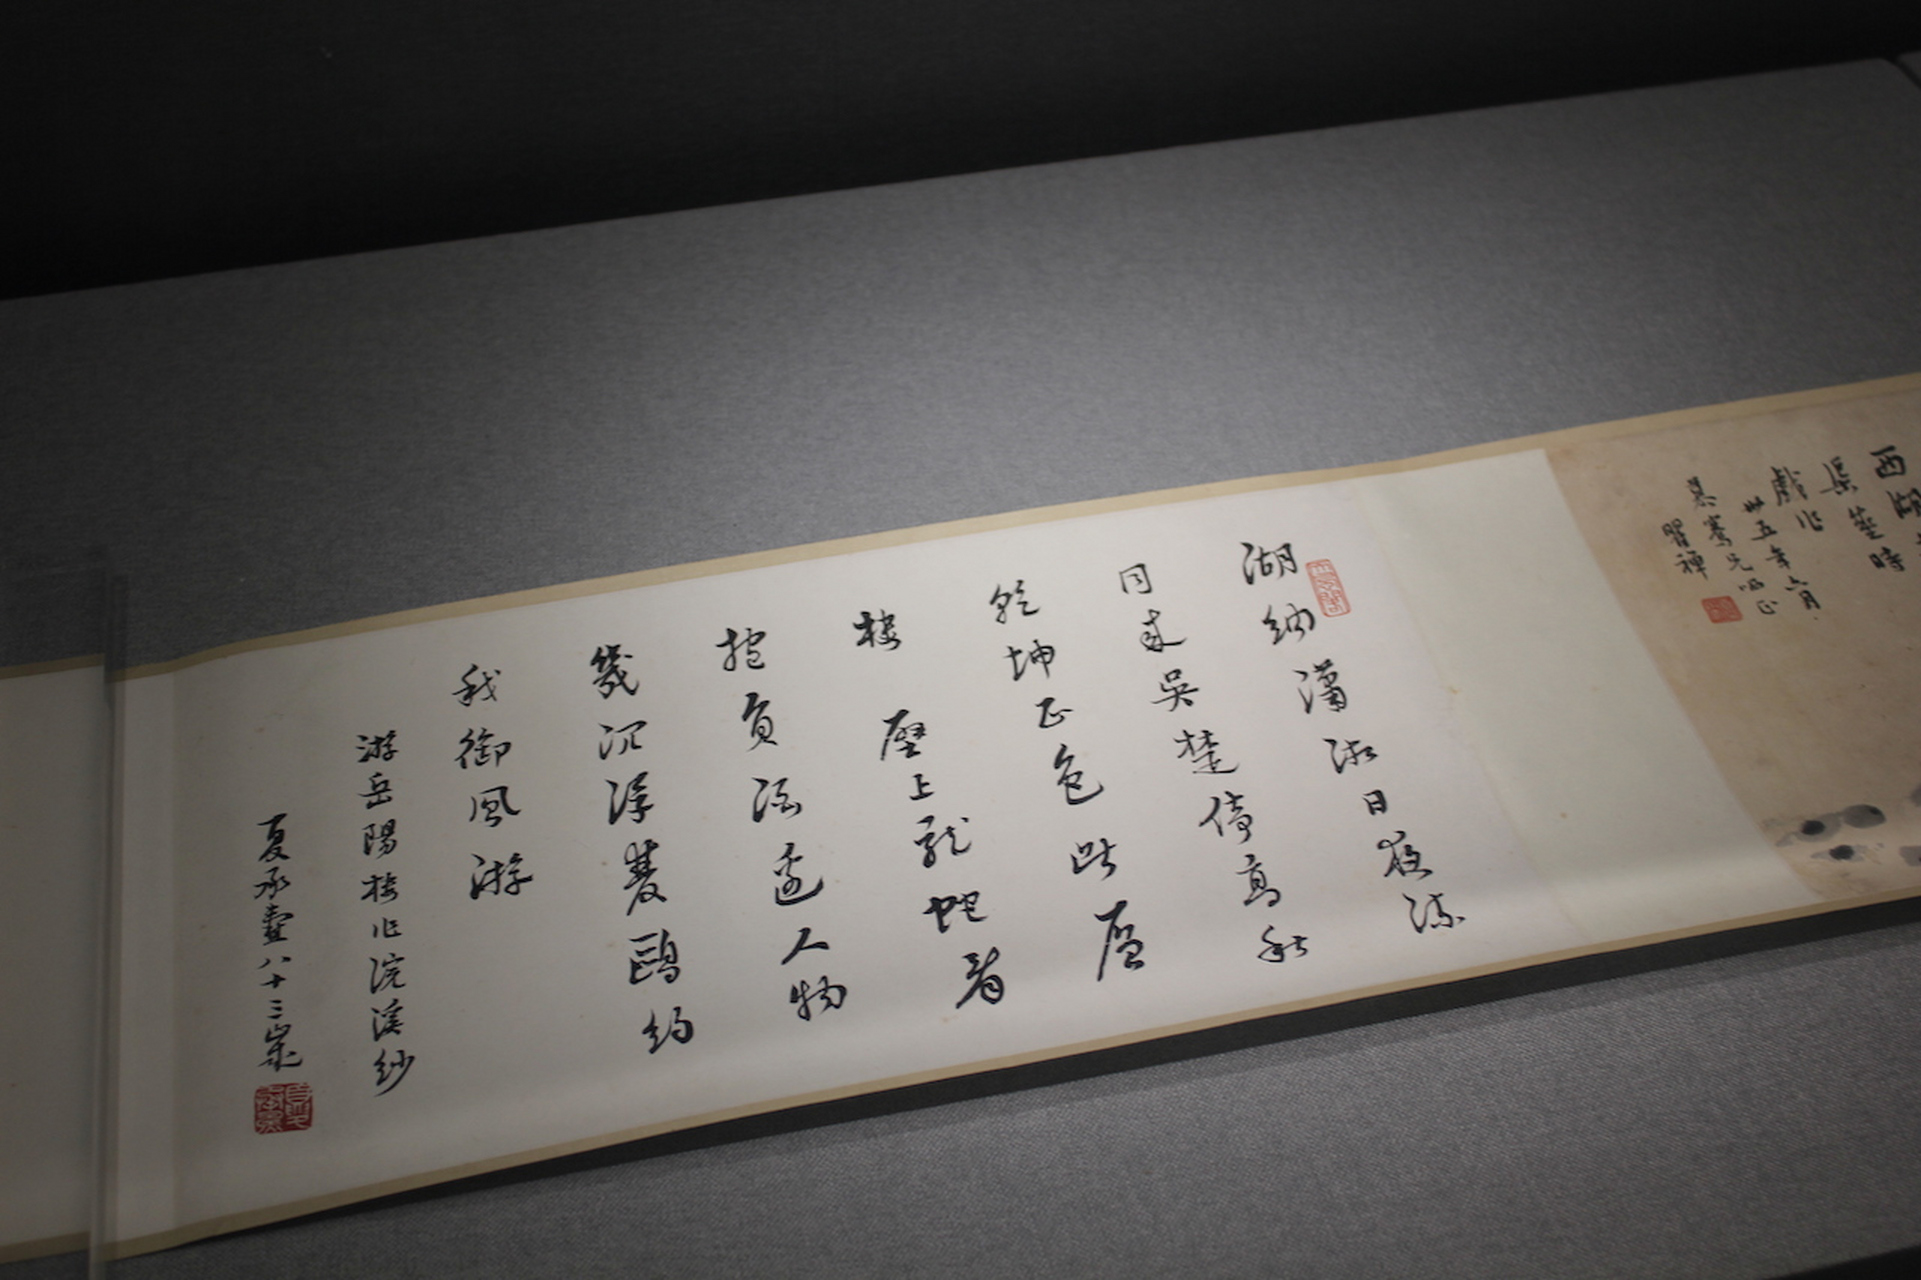 西湖
時
戲作
卅五年六月
慕騫兄哂正
瞿禪
湖納瀟湘日夜流
月來吳楚倚高秋
乾坤正色此層
樓 壁上龍蛇看
抱負酒邊人物
幾沉浮雙鷗約
我御風游
游岳陽樓作浣溪紗
夏承燾八十三歲